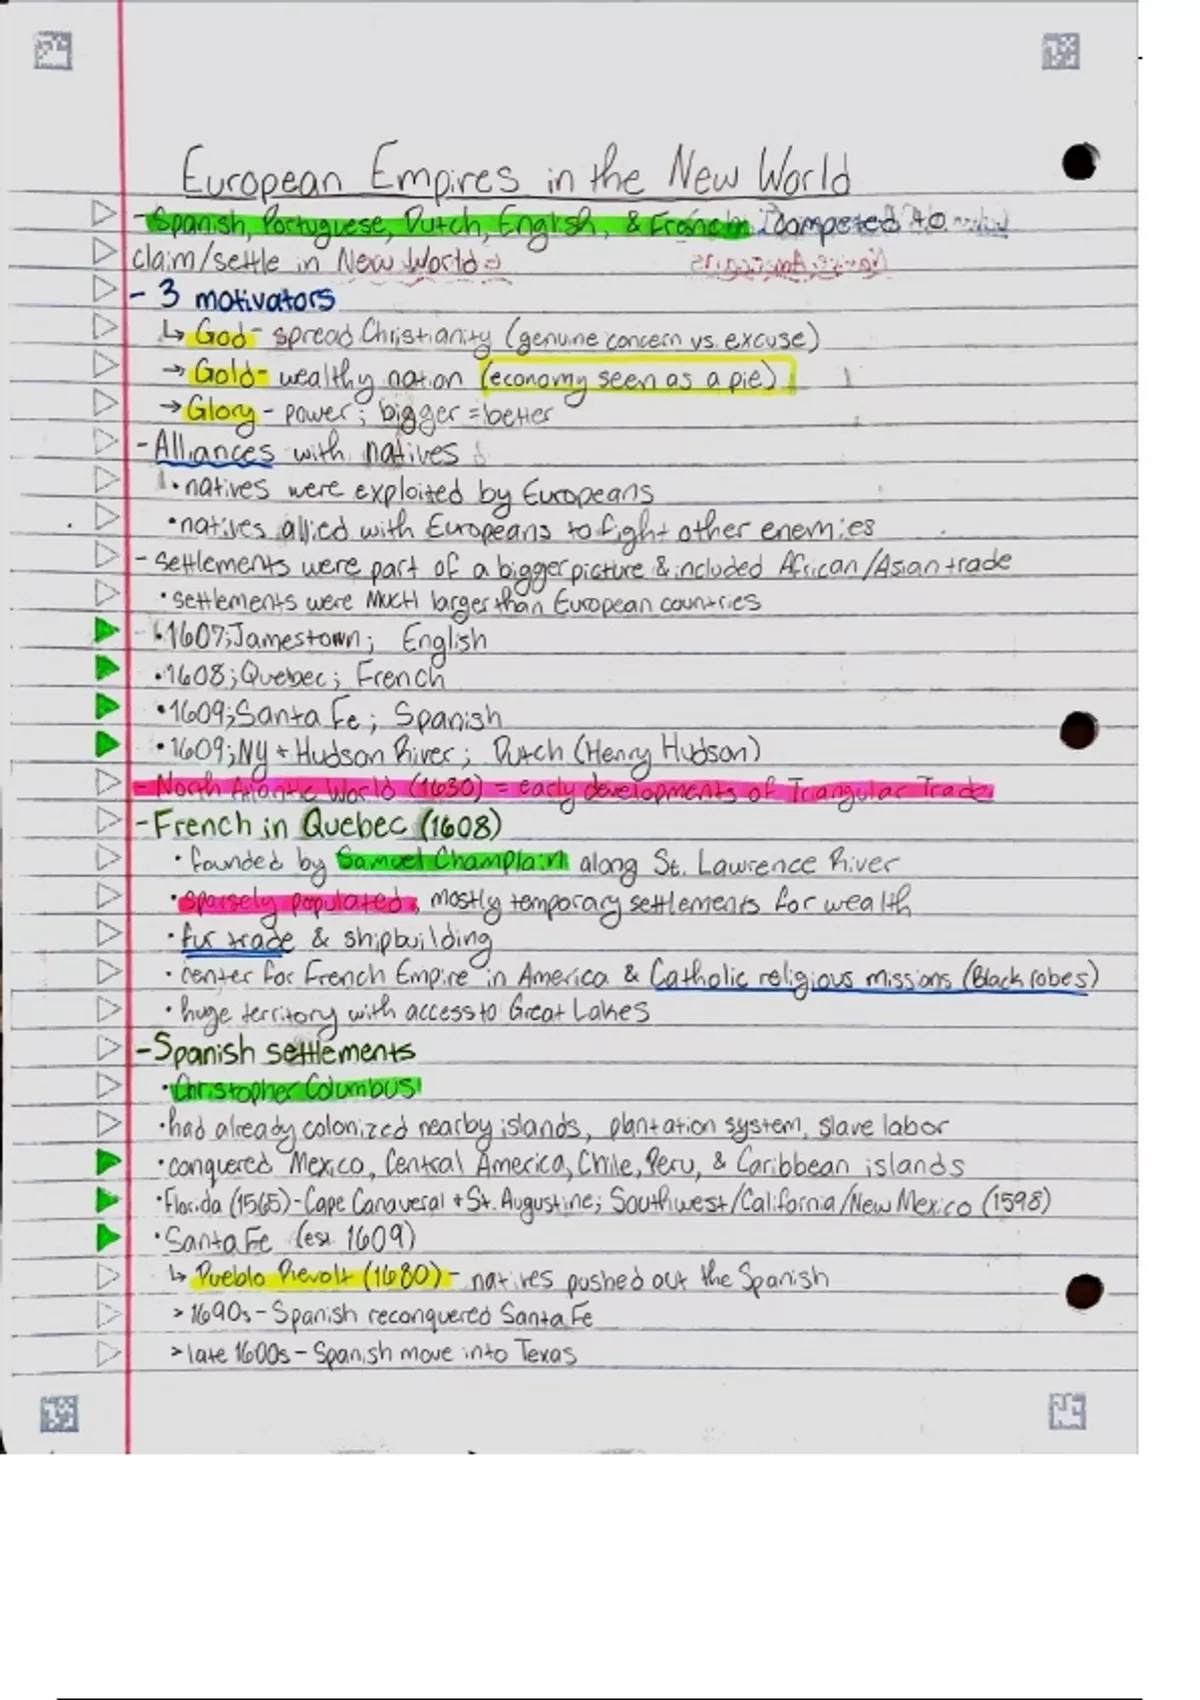 European Empires in the New World
- Spanish, Portuguese, Dutch, English, & French competed to
claim/settle in New World
- 3 motivators
↳ God - spread Christianity (genuine concern vs. excuse)
→ Gold - wealthy nation (economy seen as a pie)
→ Glory - power; bigger = better
- Alliances with natives
• natives were exploited by Europeans
• natives allied with Europeans to fight other enemies
- settlements were part of a bigger picture & included African/Asian trade
• settlements were MUCH larger than European countries
• 1607; Jamestown; English
• 1608; Quebec; French
• 1609; Santa Fe; Spanish
• 1609; NY + Hudson River; Dutch (Henry Hudson)
- North Atlantic World (1630) = early developments of Triangular Trade
- French in Quebec (1608)
• founded by Samuel Champlain along St. Lawrence River
• sparsely populated, mostly temporary settlements for wealth
• fur trade & shipbuilding
• center for French Empire in America & Catholic religious missions (Black robes)
• huge territory with access to Great Lakes
- Spanish settlements
• Christopher Columbus
• had already colonized nearby islands, plantation system, slave labor
• conquered Mexico, Central America, Chile, Peru, & Caribbean islands
• Florida (1565) - Cape Canaveral + St. Augustine; Southwest/California/New Mexico (1598)
• Santa Fe (est. 1609)
↳ Pueblo Revolt (1680) - natives pushed out the Spanish
> 1690s - Spanish reconquered Santa Fe
> late 1600s - Spanish move into Texas